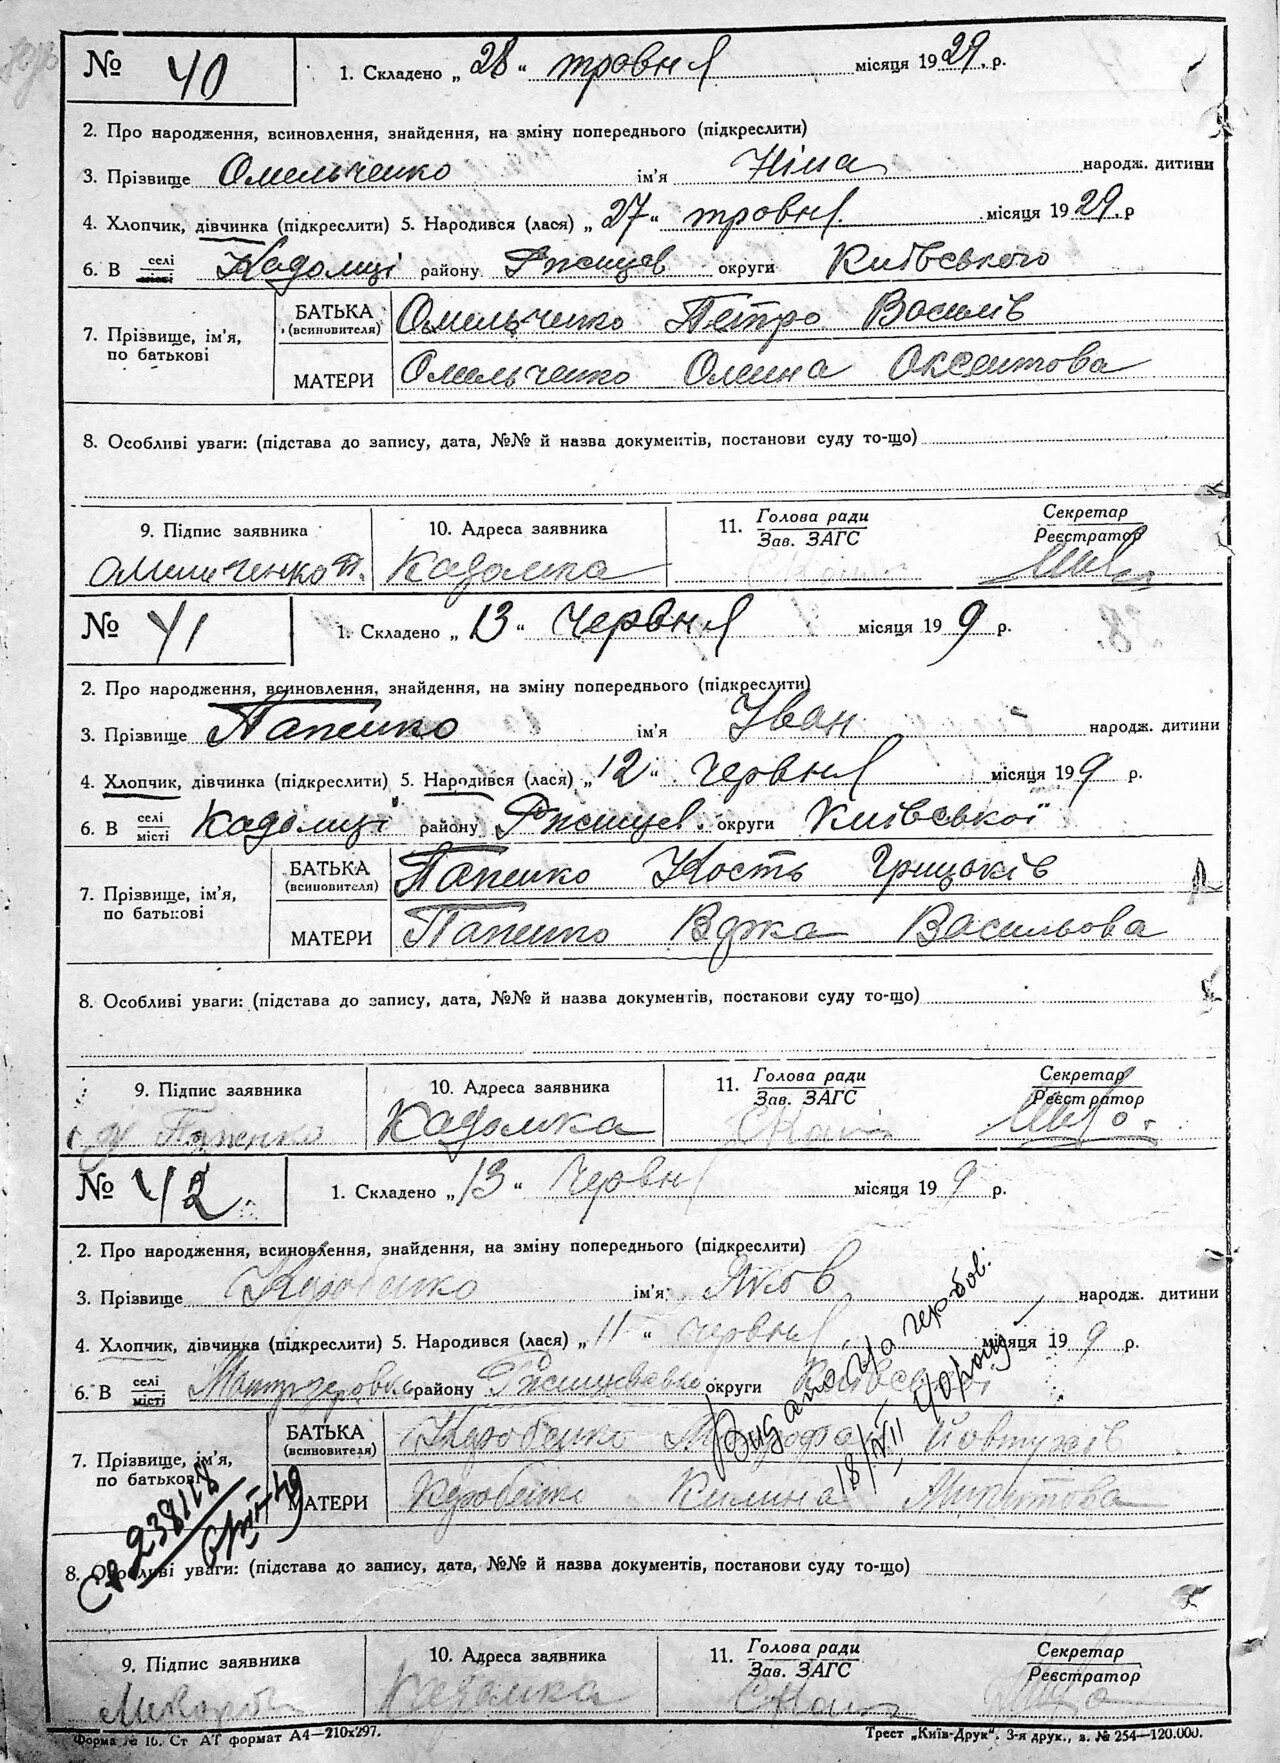 № 40 1. Складено „28“ травня місяця 1929. р.
2. Про народження, всиновлення, знайдення, на зміну попереднього (підкреслити)
3. Прізвище Омельченко ім'я Ніна народж. дитини
4. Хлопчик, дівчинка (підкреслити) 5. Народився (лася) „27“ травня місяця 1929. р
6. В селі місті Кадомці району Ржищев округи Київського
7. Прізвище, ім'я, по батькові
БАТЬКА (всиновителя) Омельченко Петро Василів
МАТЕРИ Омельченко Олина Оксентова
8. Особливі уваги: (підстава до запису, дата, №№ й назва документів, постанови суду то-що)
9. Підпис заявника 10. Адреса заявника 11. Голова ради Зав. ЗАГС Секретар Реєстратор
Омельченко П. Кадомка
№ 41 1. Складено „13“ Червня місяця 19 9 р.
2. Про народження, всиновлення, знайдення, на зміну попереднього (підкреслити)
3. Прізвище Папенко ім'я Іван народж. дитини
4. Хлопчик, дівчинка (підкреслити) 5. Народився (лася) „12“ червня місяця 19 9 р.
6. В селі місті Кадомці району Ржищев. округи Київської
7. Прізвище, ім'я, по батькові
БАТЬКА (всиновителя) Папенко Кость Грицьків
МАТЕРИ Папенко Васильова
8. Особливі уваги: (підстава до запису, дата, №№ й назва документів, постанови суду то-що)
9. Підпис заявника 10. Адреса заявника 11. Голова ради Зав. ЗАГС Секретар Реєстратор
Папенко Кадомка
№ 42 1. Складено „13“ Червня місяця 19 9 р.
2. Про народження, всиновлення, знайдення, на зміну попереднього (підкреслити)
3. Прізвище Коробейко ім'я Яков народж. дитини
4. Хлопчик, дівчинка (підкреслити) 5. Народився (лася) „11“ червня місяця 19 9 р.
6. В селі місті району округи Київської
7. Прізвище, ім'я, по батькові
БАТЬКА (всиновителя) Коробейко Йовтухів
МАТЕРИ Коробейко Килина Микитова
8. Особливі уваги: (підстава до запису, дата, №№ й назва документів, постанови суду то-що)
9. Підпис заявника 10. Адреса заявника 11. Голова ради Зав. ЗАГС Секретар Реєстратор
Кадомка
Форма № 16. Ст АТ формат А4—210х297. Трест „Київ-Друк“. 3-я друк., з. № 254—120.000.